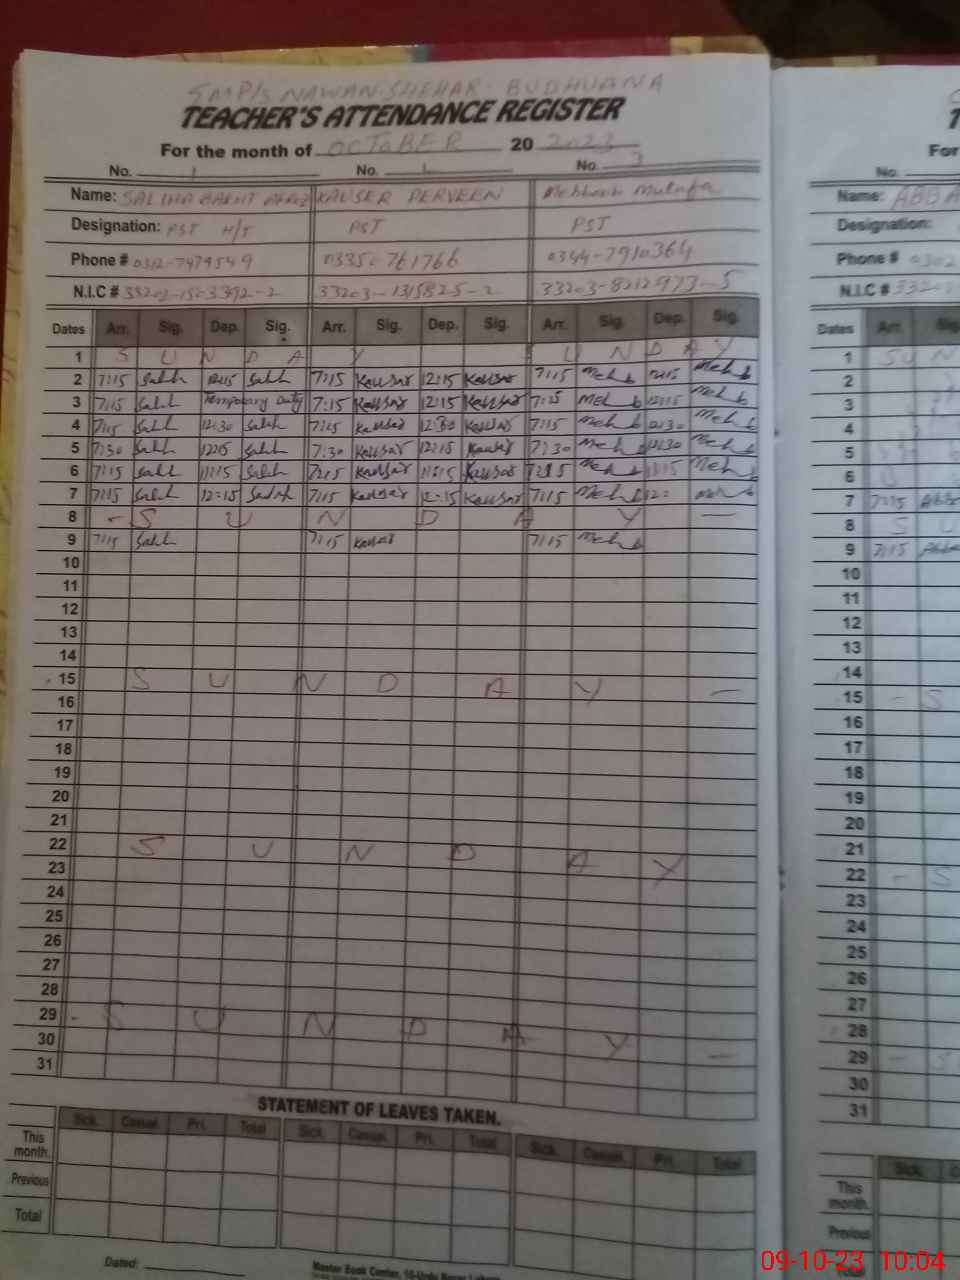 GMP/S NAWAN SHEHAR BUDHUANA
TEACHER'S ATTENDANCE REGISTER
For the month of OCTOBER 20 2023
No. 1 No. No. 3
Name: SALIHA KAUSER PERVEEN Mehboob
Designation: PST H/T PST PST
Phone # 0312-7479549 03350761766 0344-7910364
N.I.C # 33203-1315825-2 33203-8212973-5
Dates Arr. Sig. Dep. Sig. Arr. Sig. Dep. Sig. Arr. Sig. Dep. Sig.
1 S U N D A Y S U N D A Y
2 7:15 Salih 12:15 Salih 7:15 Kausar 12:15 Kausar 7:15 Meh b 12:15 Meh b
3 7:15 Salih Temporary Duty 7:15 Kausar 12:15 Kausar 7:15 Meh b 12:15 Meh b
4 7:15 Salih 12:30 Salih 7:15 Kausar 12:30 Kausar 7:15 Meh b 12:30 Meh b
5 7:30 Salih 12:15 Salih 7:30 Kausar 12:15 Kausar 7:30 Meh b 12:30 Meh b
6 7:15 Salih 11:15 Salih 7:15 Kausar 11:15 Kausar 7:15 Meh b 11:15 Meh b
7 7:15 Salih 12:15 Salih 7:15 Kausar 12:15 Kausar 7:15 Meh b 12: Meh b
8 - S U N D A Y -
9 7:15 Salih 7:15 Kausar 7:15 Meh b
10
11
12
13
14
15 S U N D A Y -
16
17
18
19
20
21
22 S U N D A Y
23
24
25
26
27
28
29 - S U N D A Y -
30
31
STATEMENT OF LEAVES TAKEN.
Sick. Casual. Pri. Total Sick. Casual. Pri. Total Sick. Casual. Pri. Total
This month.
Previous
Total
Dated:
Master Book Center, 16-Urdu Bazar Lahore
For
No.
Name: ABBA
Designation:
Phone # 0302
N.I.C #
Dates Arr.
1 SUN
2
3
4
5
6
7 7:15
8 S U
9 7:15
10
11
12
13
14
15 - S
16
17
18
19
20
21
22 - S
23
24
25
26
27
28
29 - S
30
31
Sick.
This month.
Previous
Total
09-10-23 10:04